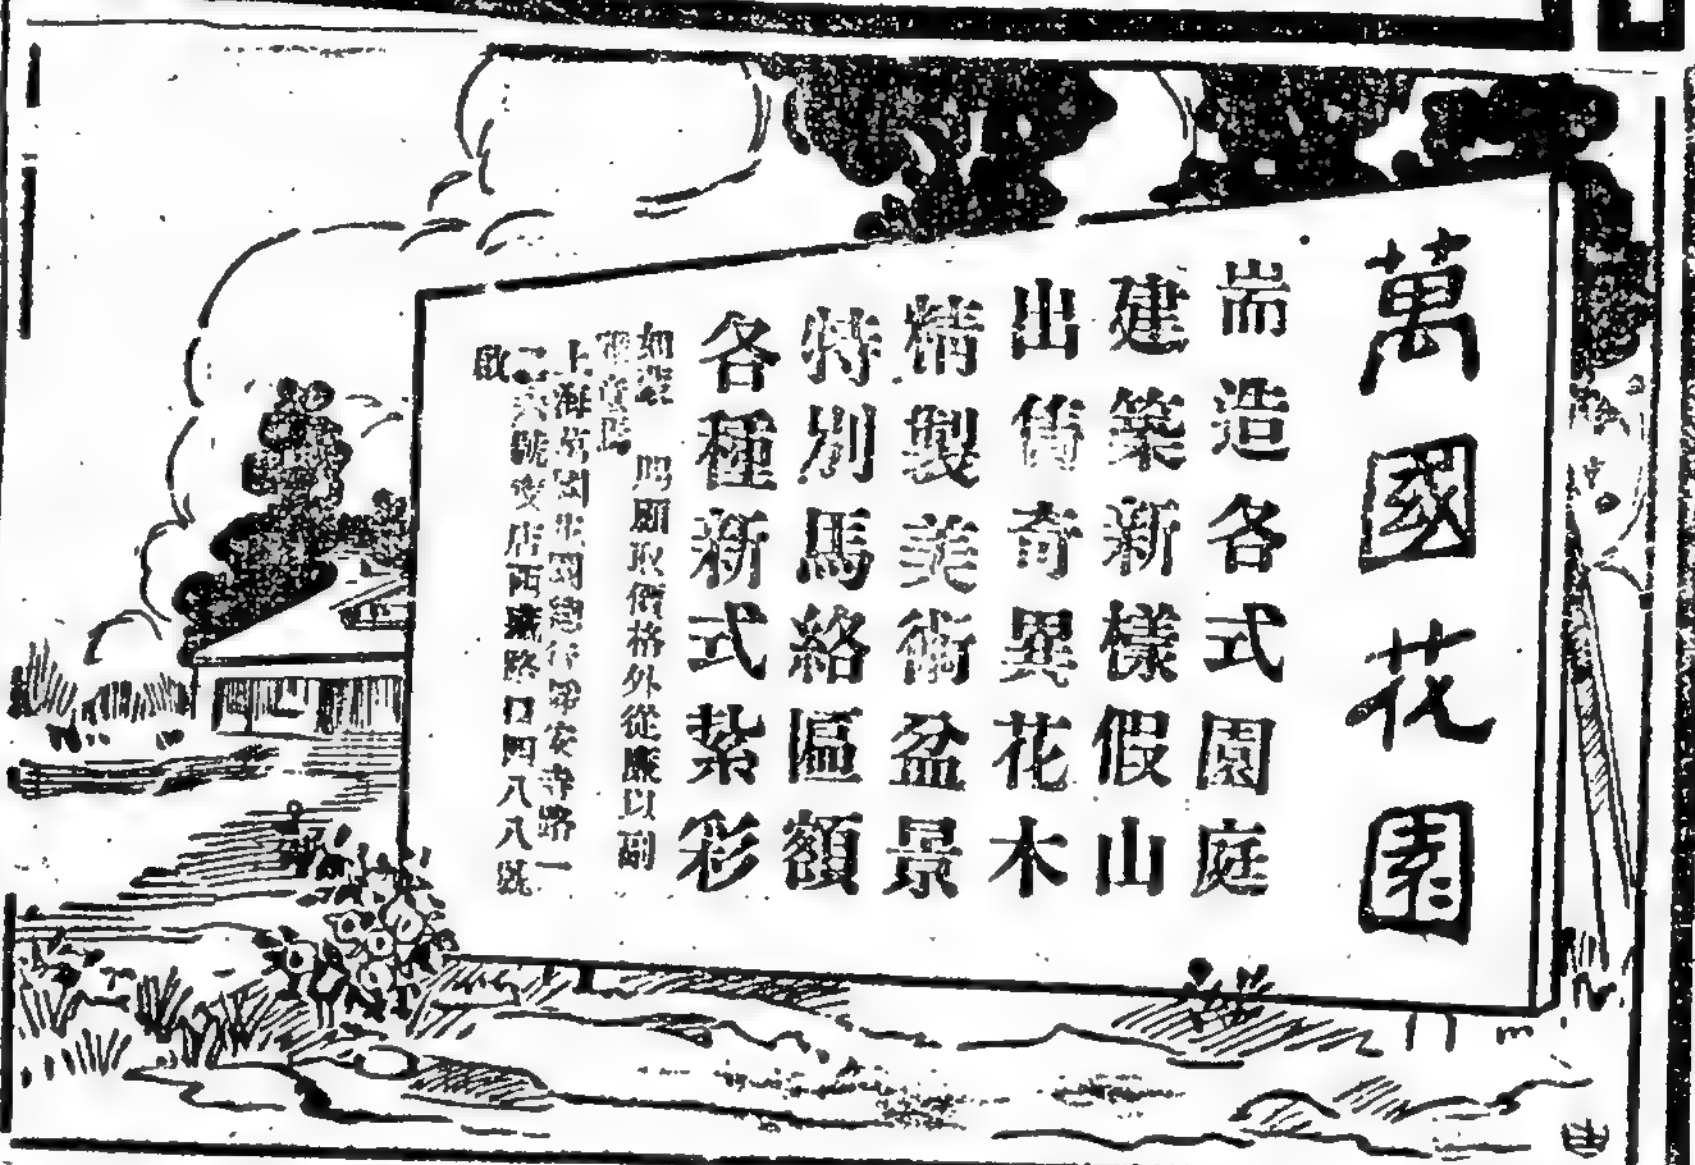 萬國花園
耑造各式園庭
建築新樣假山
出售奇異花木
精製美術盆景
特別馬絡匾額
各種新式紮彩
如蒙 賜顧取價格外從廉以副
上海萬國花園總行靜安寺路一
二六號支店西藏路口四八八號
啟